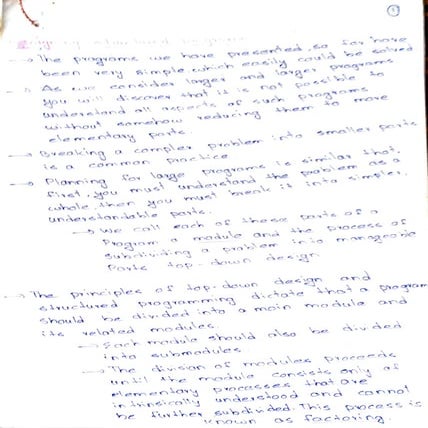 → The programs we have presented so far have
been very simple which easily could be solved
→ As we consider larger and larger programs
you will discover that it is not possible to
understand all aspects of such programs
without somehow reducing them to more
elementary parts.
→ Breaking a complex problem into smaller parts
is a common practice
→ Planning for large programs is similar that.
first, you must understand the problem as a
whole, then you must break it into simpler,
understandable parts.
→ We call each of these parts of a
Program a module and the process of
subdividing a problem into
Parts top-down design
→ The principles of top-down design and
structured programming dictate that a program
should be divided into a main module and
its related modules.
→ Each module should also be divided
into submodules
→ The division of modules proceeds
until the module consists only of
elementary processes that are
intrinsically understood and cannot
be further subdivided. This process is
known as factoring.